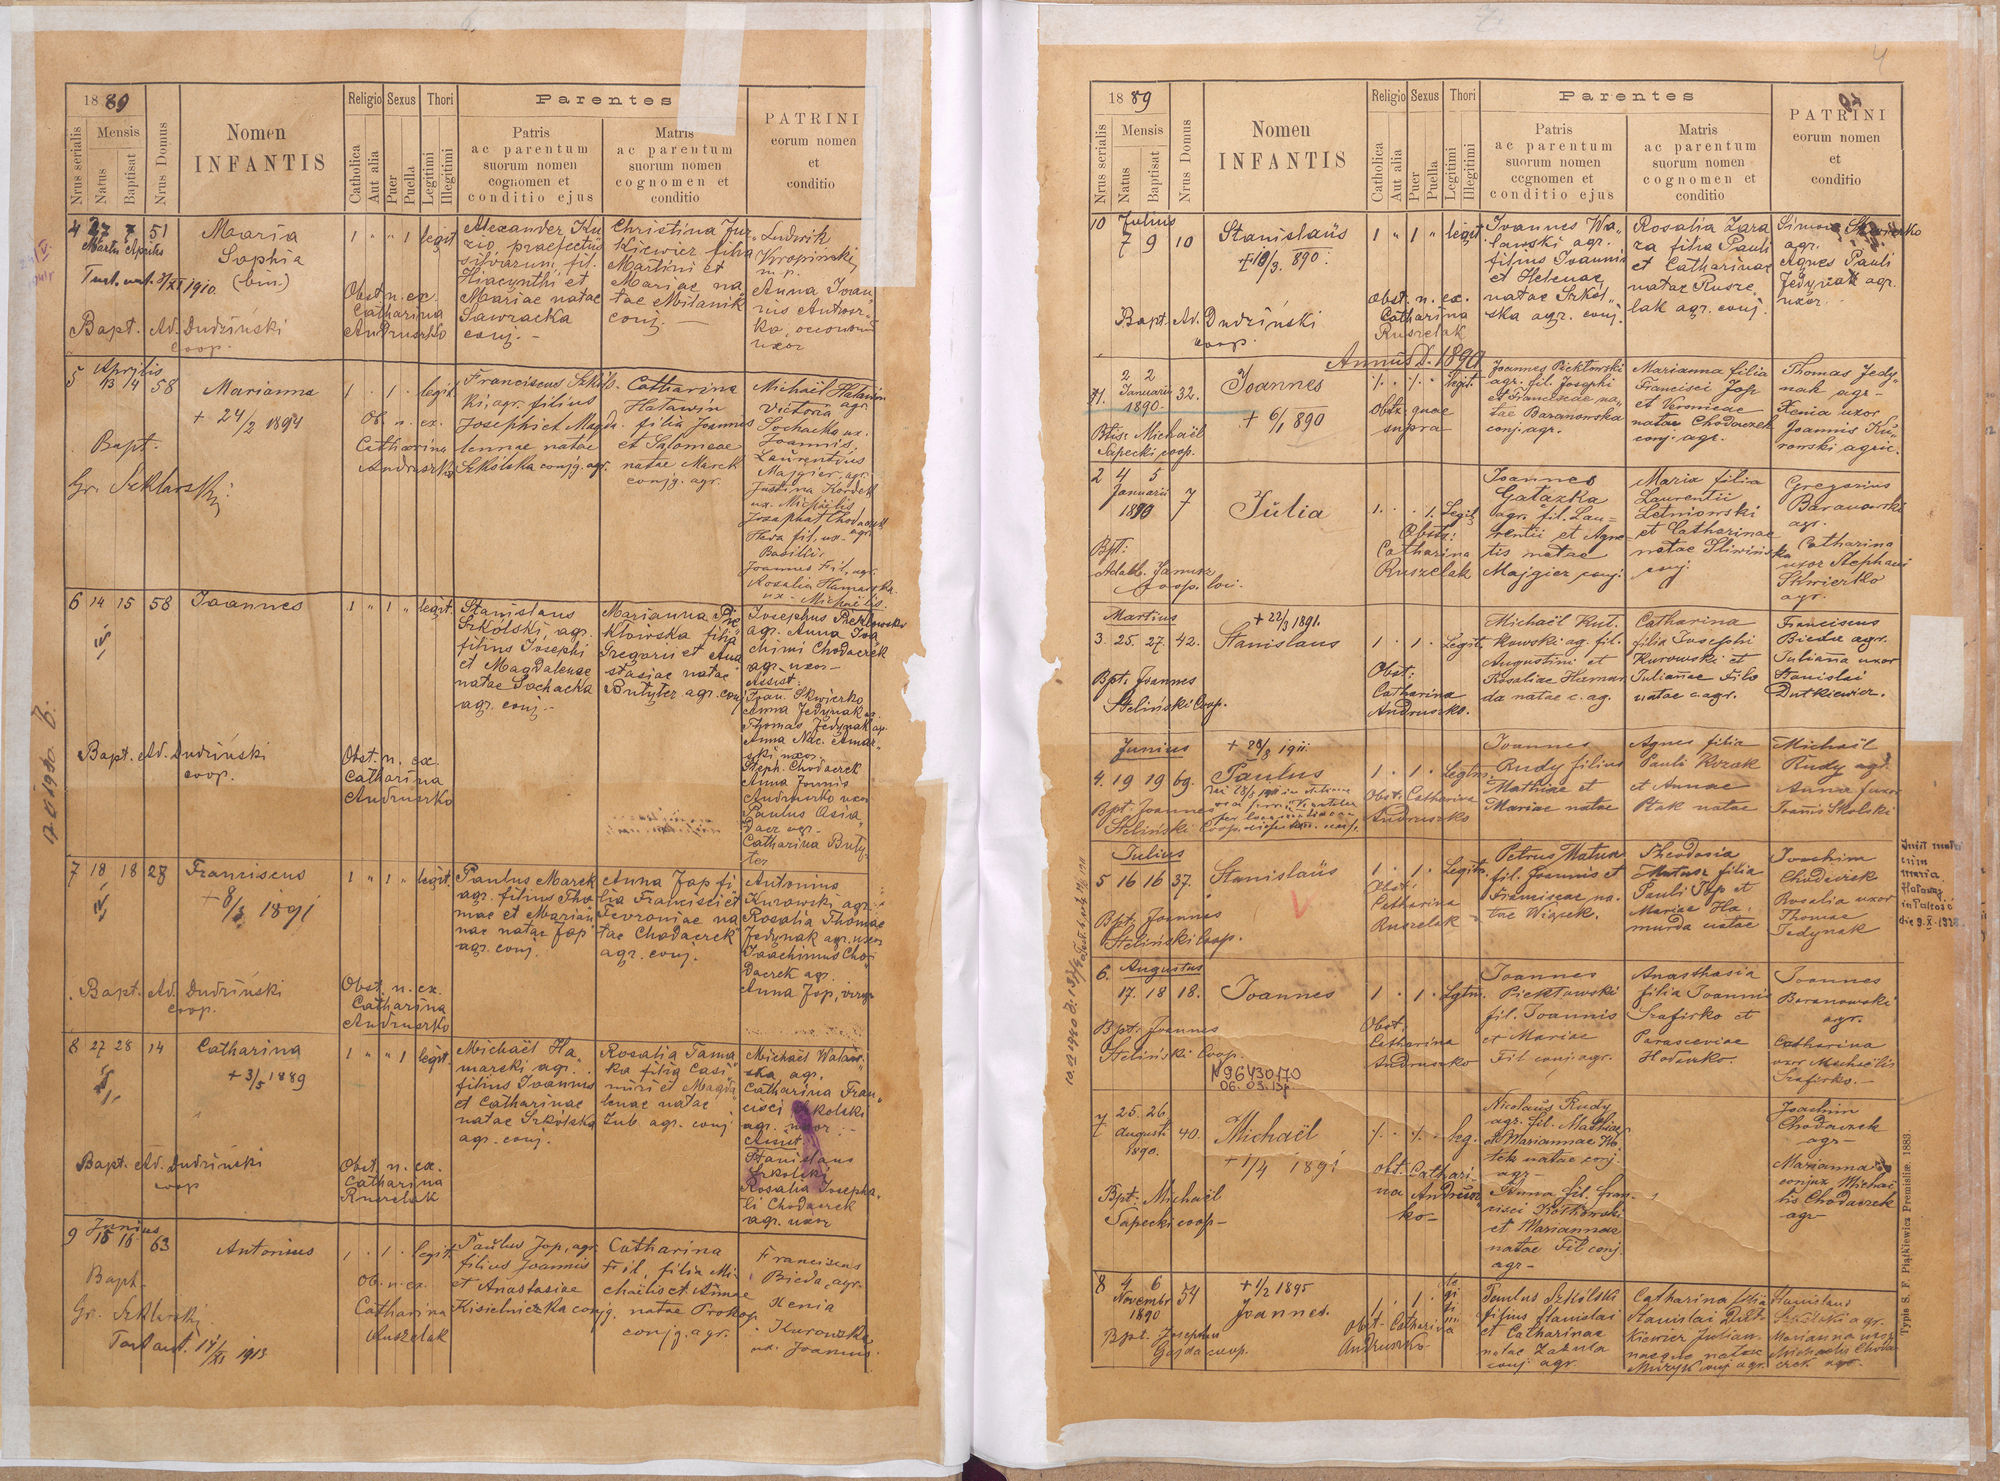 1889
Nrus serialis
Mensis
Natus
Baptisat
Nrus Domus
Nomen
INFANTIS
Religio
Catholica
Aut alia
Sexus
Puer
Puella
Thori
Legitimi
Illegitimi
Parentes
Patris
ac parentum
suorum nomen
cognomen et
conditio ejus
Matris
ac parentum
suorum nomen
cognomen et
conditio
PATRINI
eorum nomen
et
conditio
4 27 7 51
Martii Aprilis
Maria
Sophia
(bin)
Bapt. Ad. Dudziński
coop.
1 " " 1 legit
Obst. n. ex.
Catharina
Andruszko
Alexander Ku
zio, praefectus
silvarum, fil.
Hiacynthi et
Mariae natae
Sawracka
conj. -
Christina Jur
kiewicz filia
Martini et
Mariae na
tae Milanik
conj. -
Ludwik
Kropinski
m. p.
Anna Joan
nis
uxor
5 Aprilis
13 14 58
Marianna
+ 24/2 1894
Bapt.
Gr. Szklarski
1 . 1 . legit.
Ob. n. ex.
Catharina
Andruszko
Franciscus Szkols
ki, agr. filius
Josephi et Magda
lennae natae
Szkolska conjg. agr.
Catharina
Hatawin
filia Joannis
et Salomeae
natae Marek
conjg. agr.
Michaël Hatawin
agr.
Victoria
Sochacka ux.
Joannis,
Laurentius
Majgier, agr.
Justina Kordek
ux. Michaëlis
Josaphat Chodaczek
agr.
Basilii,
Joannes Fil, agr.
Rosalia Hamarska
ux. Michaëlis.
6 14 15 58 Joannes
1 " 1 " legit.
Bapt. Ad. Dudziński
coop.
Obst. n. ex.
Catharina
Andruszko
Stanislaus
Szkólski, agr.
filius Josephi
et Magdalenae
natae Sochacka
agr. conj. -
Marianna Pie
kłowska filia
Gregorii et Ana
stasiae natae
Butyter agr. conj
Josephus Piekłowski
agr. Anna Joa
chimi Chodaczek
agr. uxor -
Assist:
Joan. Skwierko
Anna Jedynak
Thomas Jedynak agr.
Steph. Chodaczek
Anna Joannis
Andruszko uxor
Paulus
agr. -
Catharina Buty
ter
7 18 18 28 Franciscus
+ 8/3 1891
1 " 1 " legit.
Bapt. Ad. Dudziński
coop.
Obst. n. ex.
Catharina
Andruszko
Paulus Marek
agr. filius Tho
mae et Marian
nae natae Jop
agr. conj.
Anna Jop fi
lia Francisci et
Fevroniae na
tae Chodaczek
agr. conj.
Antonius
Kurowski agr.
Rosalia Thomae
Jedynak agr. uxor
Joachimus Cho
daczek agr.
Anna Jop, virgo
8 27 28 14 Catharina
+ 3/5 1889
1 " " 1 legit
Bapt. Ad. Dudziński
coop
Obst. n. ex.
Catharina
Ruszelak
Michaël Ha
marski agr.
filius Joannis
et Catharinae
natae Szkólska
agr. conj.
Rosalia Tama
ka filia Casi
miri et Magda
lenae natae
Zub. agr. conj
Michaël
ska agr.
Catharina Fran
cisci Szkolski
agr. uxor. -
Assist:
Stanislaus
Szkolski
Rosalia Josepha
ti Chodaczek
agr. uxor
9 Junius
15 16 63
Antonius
Bapt.
Gr. Szklarski
1 . 1 . legit.
Ob. n. ex.
Catharina
Ruszelak
Paulus Jop, agr.
filius Joannis
et Anastasiae
Kisielniczka conjg.
Catharina
Fil, filia Mi
chaëlis et Annae
natae Prokop
conjg. agr.
Franciscus
Bieda, agr.
Xenia
Kurowska
ux. Joannis.
1889
Nrus serialis
Mensis
Natus
Baptisat
Nrus Domus
Nomen
INFANTIS
Religio
Catholica
Aut alia
Sexus
Puer
Puella
Thori
Legitimi
Illegitimi
Parentes
Patris
ac parentum
suorum nomen
ccgnomen et
conditio ejus
Matris
ac parentum
suorum nomen
cognomen et
conditio
PATRINI
eorum nomen
et
conditio
10 Julius
7 9 10
Stanislaüs
+ 18/3. 890.
Bapt. Ad. Dudziński
coop.
1 " 1 " legit
Obst. n. ex.
Catharina
Ruszelak
Joannes Wa
ławski agr.
filius Joannis
et Helenae
natae Szkol
ska agr. conj.
Rosalia Zara
za filia Pauli
et Catharinae
natae Rusze
lak agr. conj.
Simon Skwierko
agr.
Agnes Pauli
Jedynak agr.
uxor.
Annus D. 1890
2 2
1. Januarii 32.
1890.
Joannes
+ 6/1 890
Btis: Michaël
Sapecki coop.
1. . 1. . legit
Obst: quae
supra
Joannes Piekłowski
agr. fil. Josephi
et Franciscae na
tae Baranowska
conj. agr.
Marianna filia
Francisci Jop
et Veronicae
natae Chodaczek
conj. agr.
Thomas Jedy
nak agr -
Xenia uxor
Joannis Ku
rowski agric.
2 4 5
Januarii 7
1890
Julia
Bpt:
Adalb. Janusz
Coop. loci.
1. . . 1. Legit.
Obst:
Catharina
Ruszelak
Joannes
Gałązka
agr. fil. Lau
rentii et Agne
tis natae
Majgier conj:
Maria filia
Laurentii
Letniowski
et Catharinae
natae Śliwińska
conj:
Gregorius
Baranowski
agr.
Catharina
uxor Stephani
Skwierko
agr.
Martius
3. 25. 27. 42.
+ 22/3 1891.
Stanislaus
Bpt. Joannes
Steliński Coop.
1 . 1 . Legit.
Obst:
Catharina
Andruszko.
Michaël Kut
kowski ag. fil.
Augustini et
Rosaliae Hamar
da natae c. ag.
Catharina
filia Josephi
Kurowski et
Julianae Filo
natae c. agr.
Franciscus
Bieda agr.
Julianna uxor
Stanislai
Dutkiewicz.
Junius
4. 19 19 69.
+ 28/8 1911
Paulus
Bpt. Joannes
Steliński Coop.
1 . 1 . Legtm.
Obst: Catharina
Andruszko
Joannes
Rudy filius
Mathiae et
Mariae natae
Agnes filia
Pauli Kozak
et Annae
Ptak natae
Michaël
Rudy agr.
Anna uxor
Joannis Skolski
Julius
5 16 16 37.
Stanislaüs
V
Bpt. Joannes
Steliński Coop.
1 . 1 . Legit.
Obst:
Catharina
Ruszelak
Petrus Matusz
fil. Joannis et
Franciscae na
tae Wiącek.
Theodosia
filia
Pauli Jop et
Mariae Ha
murda natae
Joachim
Chodaczek
Rosalia uxor
Thomae
Jedynak
Iniit matri
9.X.1928.
6. Augustus
17. 18 18.
Joannes
Bpt: Joannes
Steliński Coop.
1 . 1 . Lgtm.
Obst:
Catharina
Andruszko
Joannes
Piekłowski
fil. Joannis
et Mariae
Fil conj. agr.
Anasthasia
filia Joannis
Szafirko et
Parasceviae
Hodenko.
Joannes
Baranowski
agr.
Catharina
uxor Michaëlis
Szafirko. -
N 96430170
06. 03. 13
7 25. 26
Augusti 40.
1890.
Michaël
+ 1/4 1891
Bpt: Michaël
Sapecki coop -
1. . 1. . lig.
Obt. Cathari
na Andrusz
ko -
Nicolaüs Rudy
agr. fil. Mathiae
et Mariannae Ko
tek natae conj.
agr -
Anna fil. Fran
cisci Kotkowski
et Mariannae
natae Fil conj.
agr -
Joachim
Chodaczek
agr -
Marianna
conjux Michaë
lis Chodaczek
agr -
8 4 6
Novembr 54
1890
+ 1/2 1895
Joannes.
Bpt. Josephus
Gajda coop.
1 . 1 .
Obst. Catharina
Andruszko
Paulus Szkólski
filius Stanislai
et Catharinae
natae Zakula
conj. agr.
Catharina filia
Stanislai Dut
kiewicz Julian
naeque natae
Muzyk conj. agr.
Stanislaus
Szkólski agr.
Marianna uxor
Michaelis Choda
czek agr.
Typis S. F. Piątkiewicz Premisliæ. 1883.